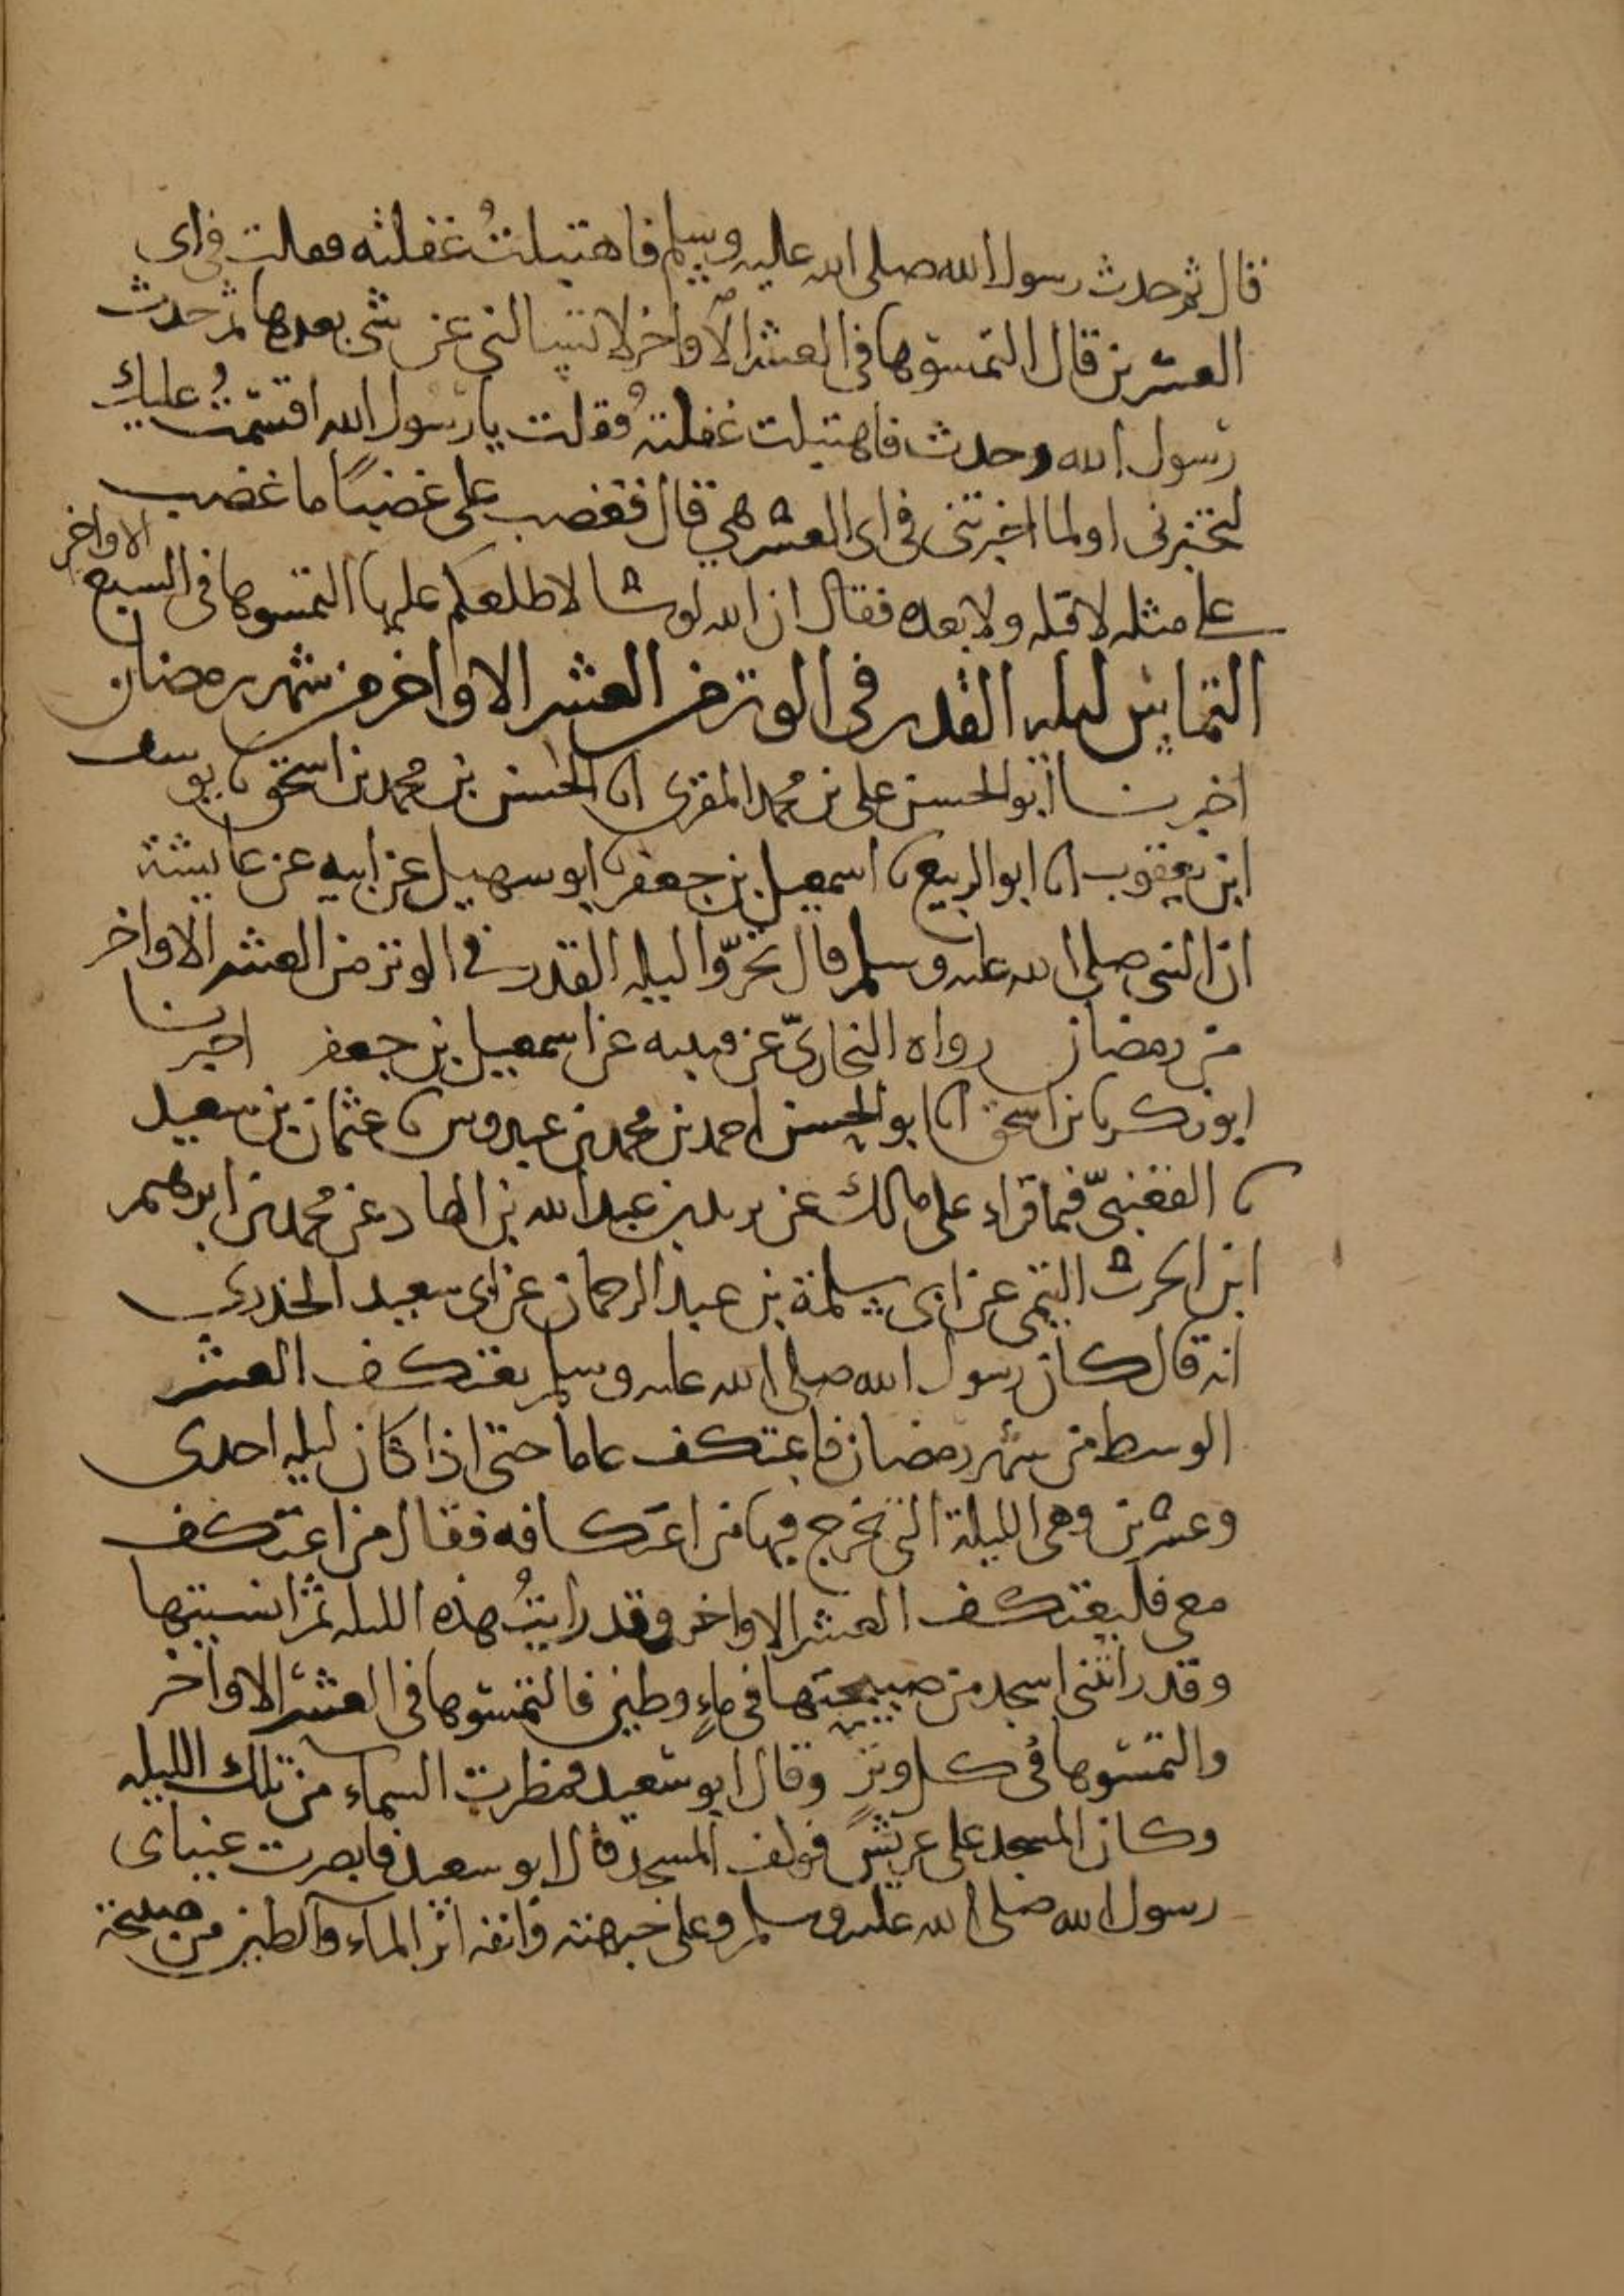 قال ثم حدث رسول الله صلى الله عليه وسلم فاهتبلتُ غفلته فقلت في اى
العشرين قال التمسوها فى العشر الأواخر لا تسالنى عن شى بعدها ثم حدث
رسول الله وحدث فاهتبلت غفلته فقلت يا رسول الله اقسمتُ عليك
لتخبرنى اولما اخبرتنى فى اى العشر هي قال فغضب على غضباً ما غضب
على مثله لا قبله ولا بعده فقال ان الله لو شا لاطلعكم عليها التمسوها فى السبع الاواخر
التماس ليله القدر فى الوتر من العشر الاواخر من شهر رمضان
اخبرنا ابو الحسن على بن محمد المقرى انا الحسن بن محمد بن اسحق نا يوسف
ابن يعقوب انا ابو الربيع نا اسمعيل بن جعفر نا ابو سهيل عن ابيه عن عايشة
ان النبى صلى الله عليه وسلم قال تحرّوا ليله القدر فى الوتر من العشر الاواخر
من رمضان رواه البخاريّ عن قتيبه عن اسمعيل بن جعفر اخبرنا
ابو زكريا بن اسحق انا ابو الحسن احمد بن محمد بن عبدوس نا عثمان بن سعيد
نا القعنبىّ فيما قراء على مالك عن يزيد بن عبد الله بن الهاد عن محمد بن ابرهيم
ابن الحرث التيمى عن ابى سلمة بن عبد الرحمان عن ابى سعيد الخدرى
انه قال كان رسول الله صلى الله عليه وسلم يعتكف العشر
الوسط من شهر رمضان فاعتكف عاماً حتى اذا كان ليله احدى
وعشرين وهى الليلة التى يخرج فيها من اعتكافه فقال من اعتكف
معى فليعتكف العشر الاواخر وقد رايتُ هذه الليله ثم انسيتها
وقد راتنى اسجد من صبيحتها فى ماءٍ وطين فالتمسوها فى العشر الاواخر
والتمسوها فى كل وتر وقال ابو سعيد فمطرت السماء من تلك الليله
وكان المسجد على عريش فوكف المسجد قال ابو سعيد فابصرت عيناى
رسول الله صلى الله عليه وسلم وعلى جبهته وانفه اثر الماء والطين من صبيحة